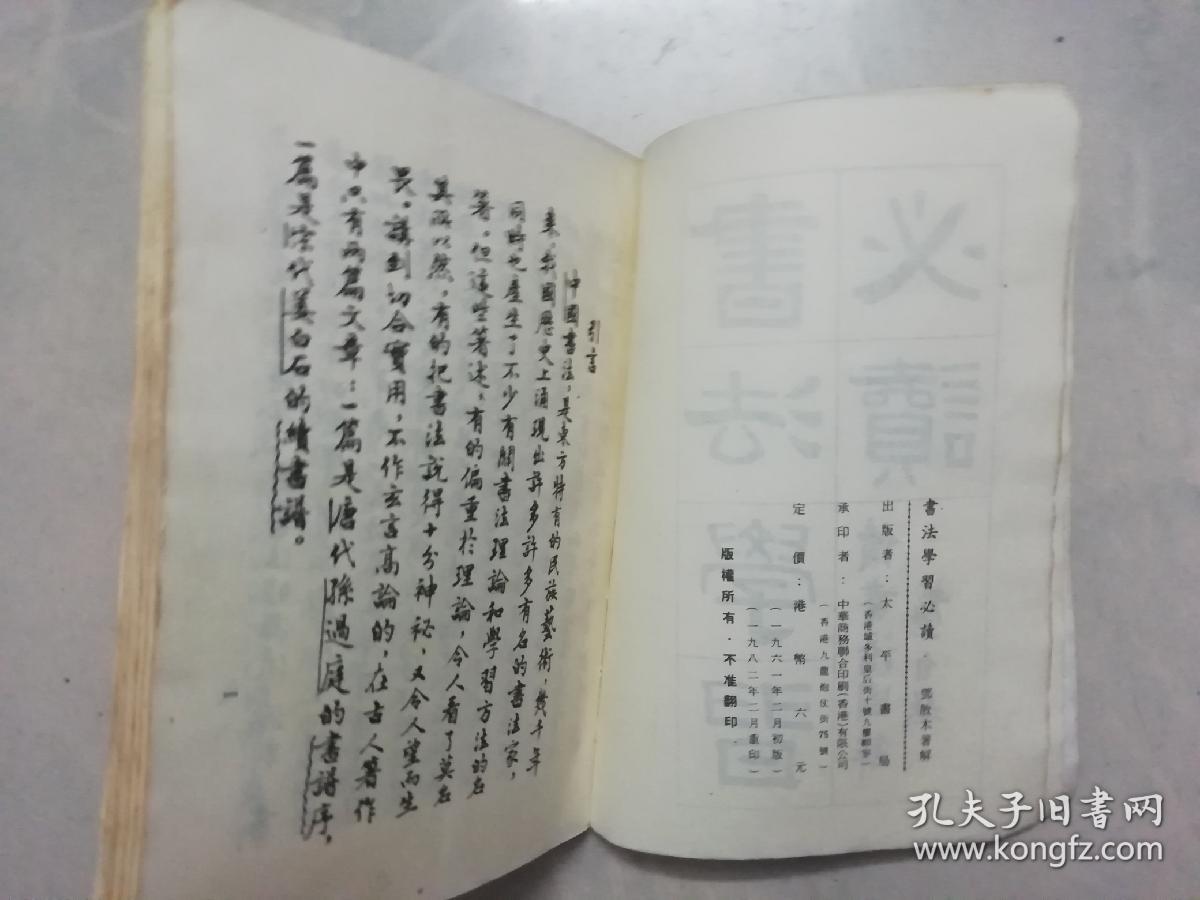 書法學習必讀・鄧散木著解
出版者：太平書局
（香港域多利皇后街十號九樓柳寧）
承印者：中華商務聯合印刷（香港）有限公司
（香港九龍炮仗街75號）
定價：港幣六元
（一九六一年二月初版）
（一九八二年二月重印）
版權所有・不准翻印
引言
中國書法，是東方特有的民族藝術，幾千年
來，我國歷史上湧現出許多許多有名的書法家，
同時也產生了不少有關書法理論和學習方法的名
著。但這些著述，有的偏重於理論，令人看了莫名
其所以然，有的把書法說得十分神祕，又令人望而生
畏。講到切合實用，不作玄言高論的，在古人著作
中只有兩篇文章：一篇是唐代孫過庭的書譜序，
一篇是宋代姜白石的續書譜。
一
必讀
書法學習
孔夫子旧书网
www.kongfz.com